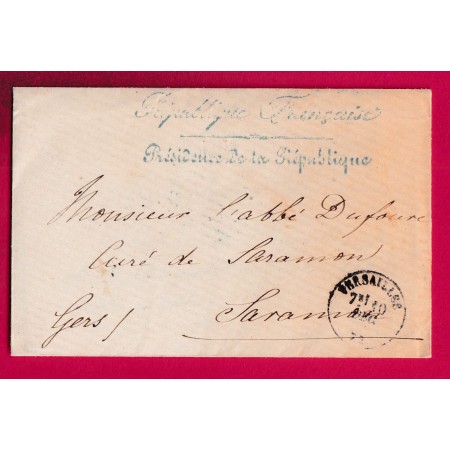 République Française
Présidence de la République
Monsieur l'abbé Dufour
Curé de Saramon
Gers / Saramon
VERSAILLES
7E